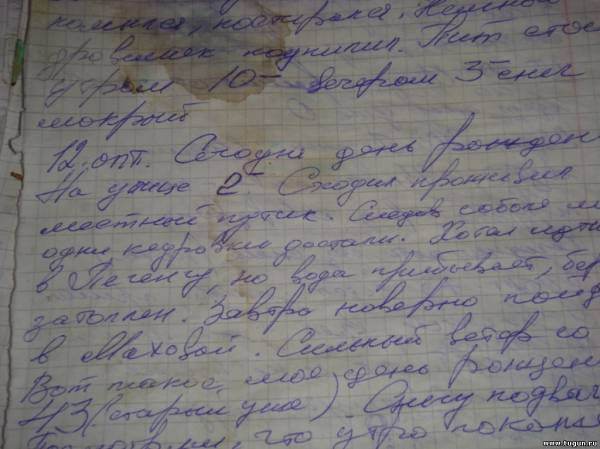 постирался. Немно
дровишек подпилил. Пит
утром 10- вечером 3- снег
мокрый
12. окт. Сегодня день рожден
На улице 2- Сходил проживил
местный путик. Следов соболя
одни кедровки достали. Хотел идти
в Печенгу, но вода прибывает, бер
затоплен. Завтра наверно пойд
в Маховой. Сильный ветер со
Вот такое, мое день рожден
43 (старый уже) Снегу подва
что утро покаж
www.tugun.ru